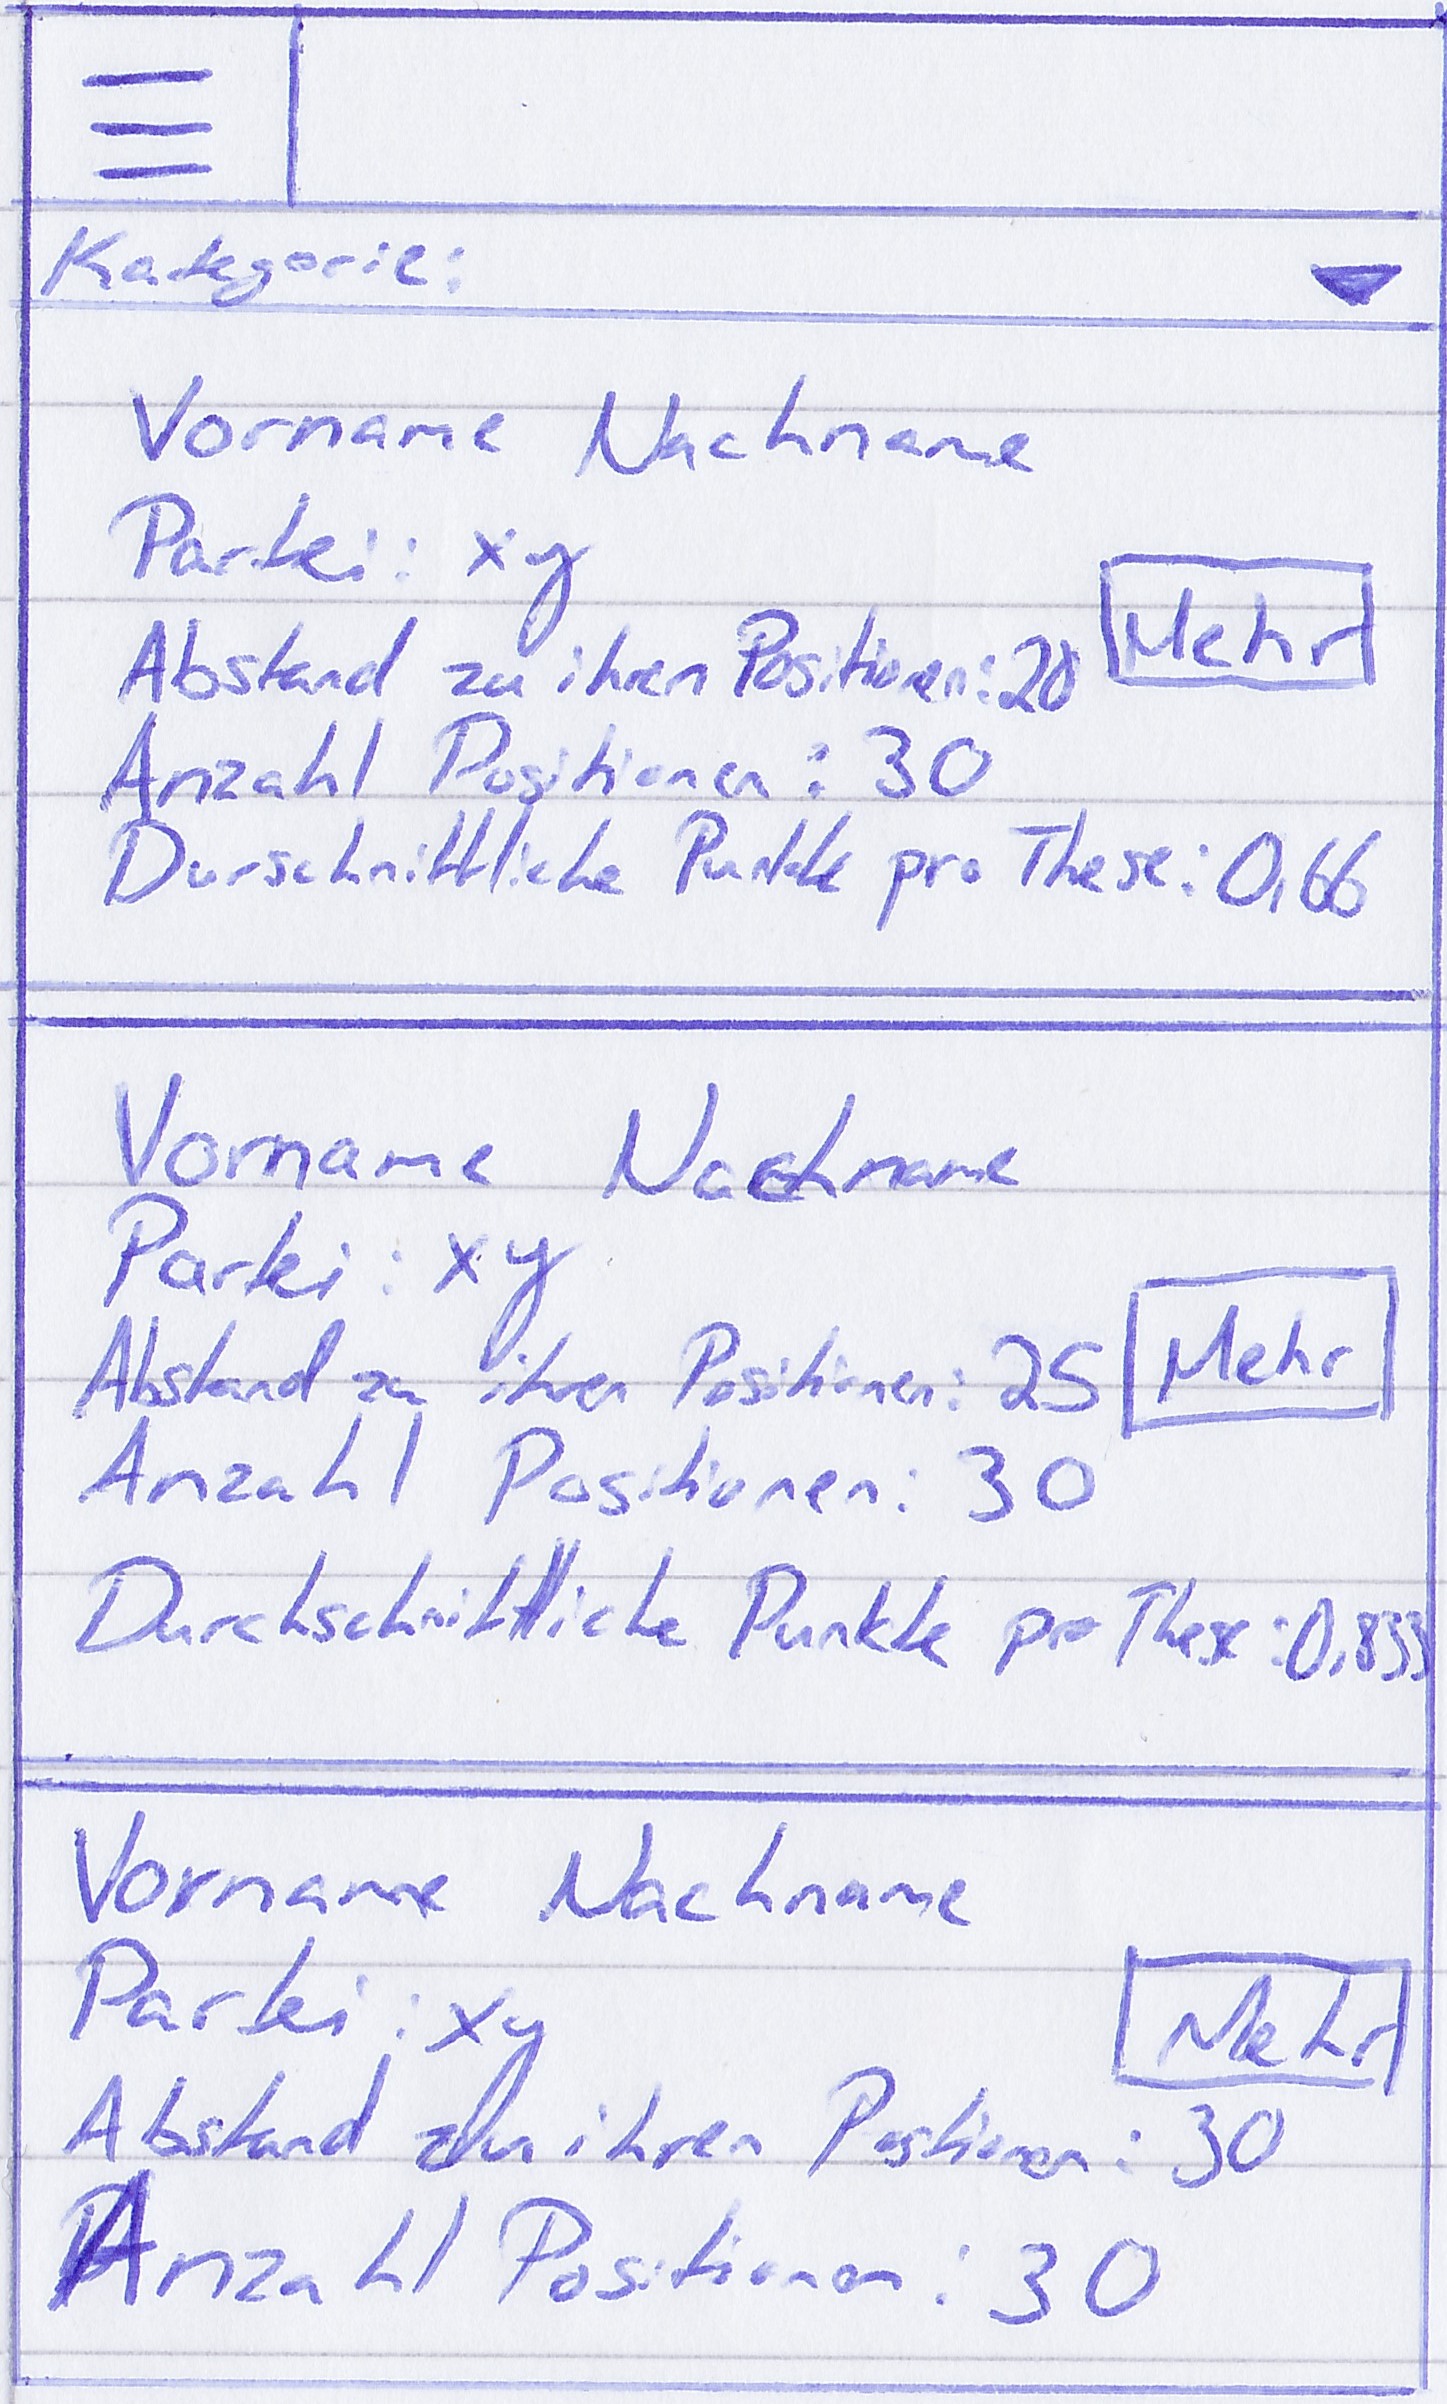 Kategorie:
Vorname Nachname
Partei: xy
Abstand zu ihren Positionen: 20
Mehr
Anzahl Positionen: 30
Durschnittliche Punkte pro These: 0,66
Vorname Nachname
Partei: xy
Abstand zu ihren Positionen: 25
Mehr
Anzahl Positionen: 30
Durchschnittliche Punkte pro These: 0,833
Vorname Nachname
Partei: xy
Mehr
Abstand zu ihren Postionen: 30
Anzahl Positionen: 30